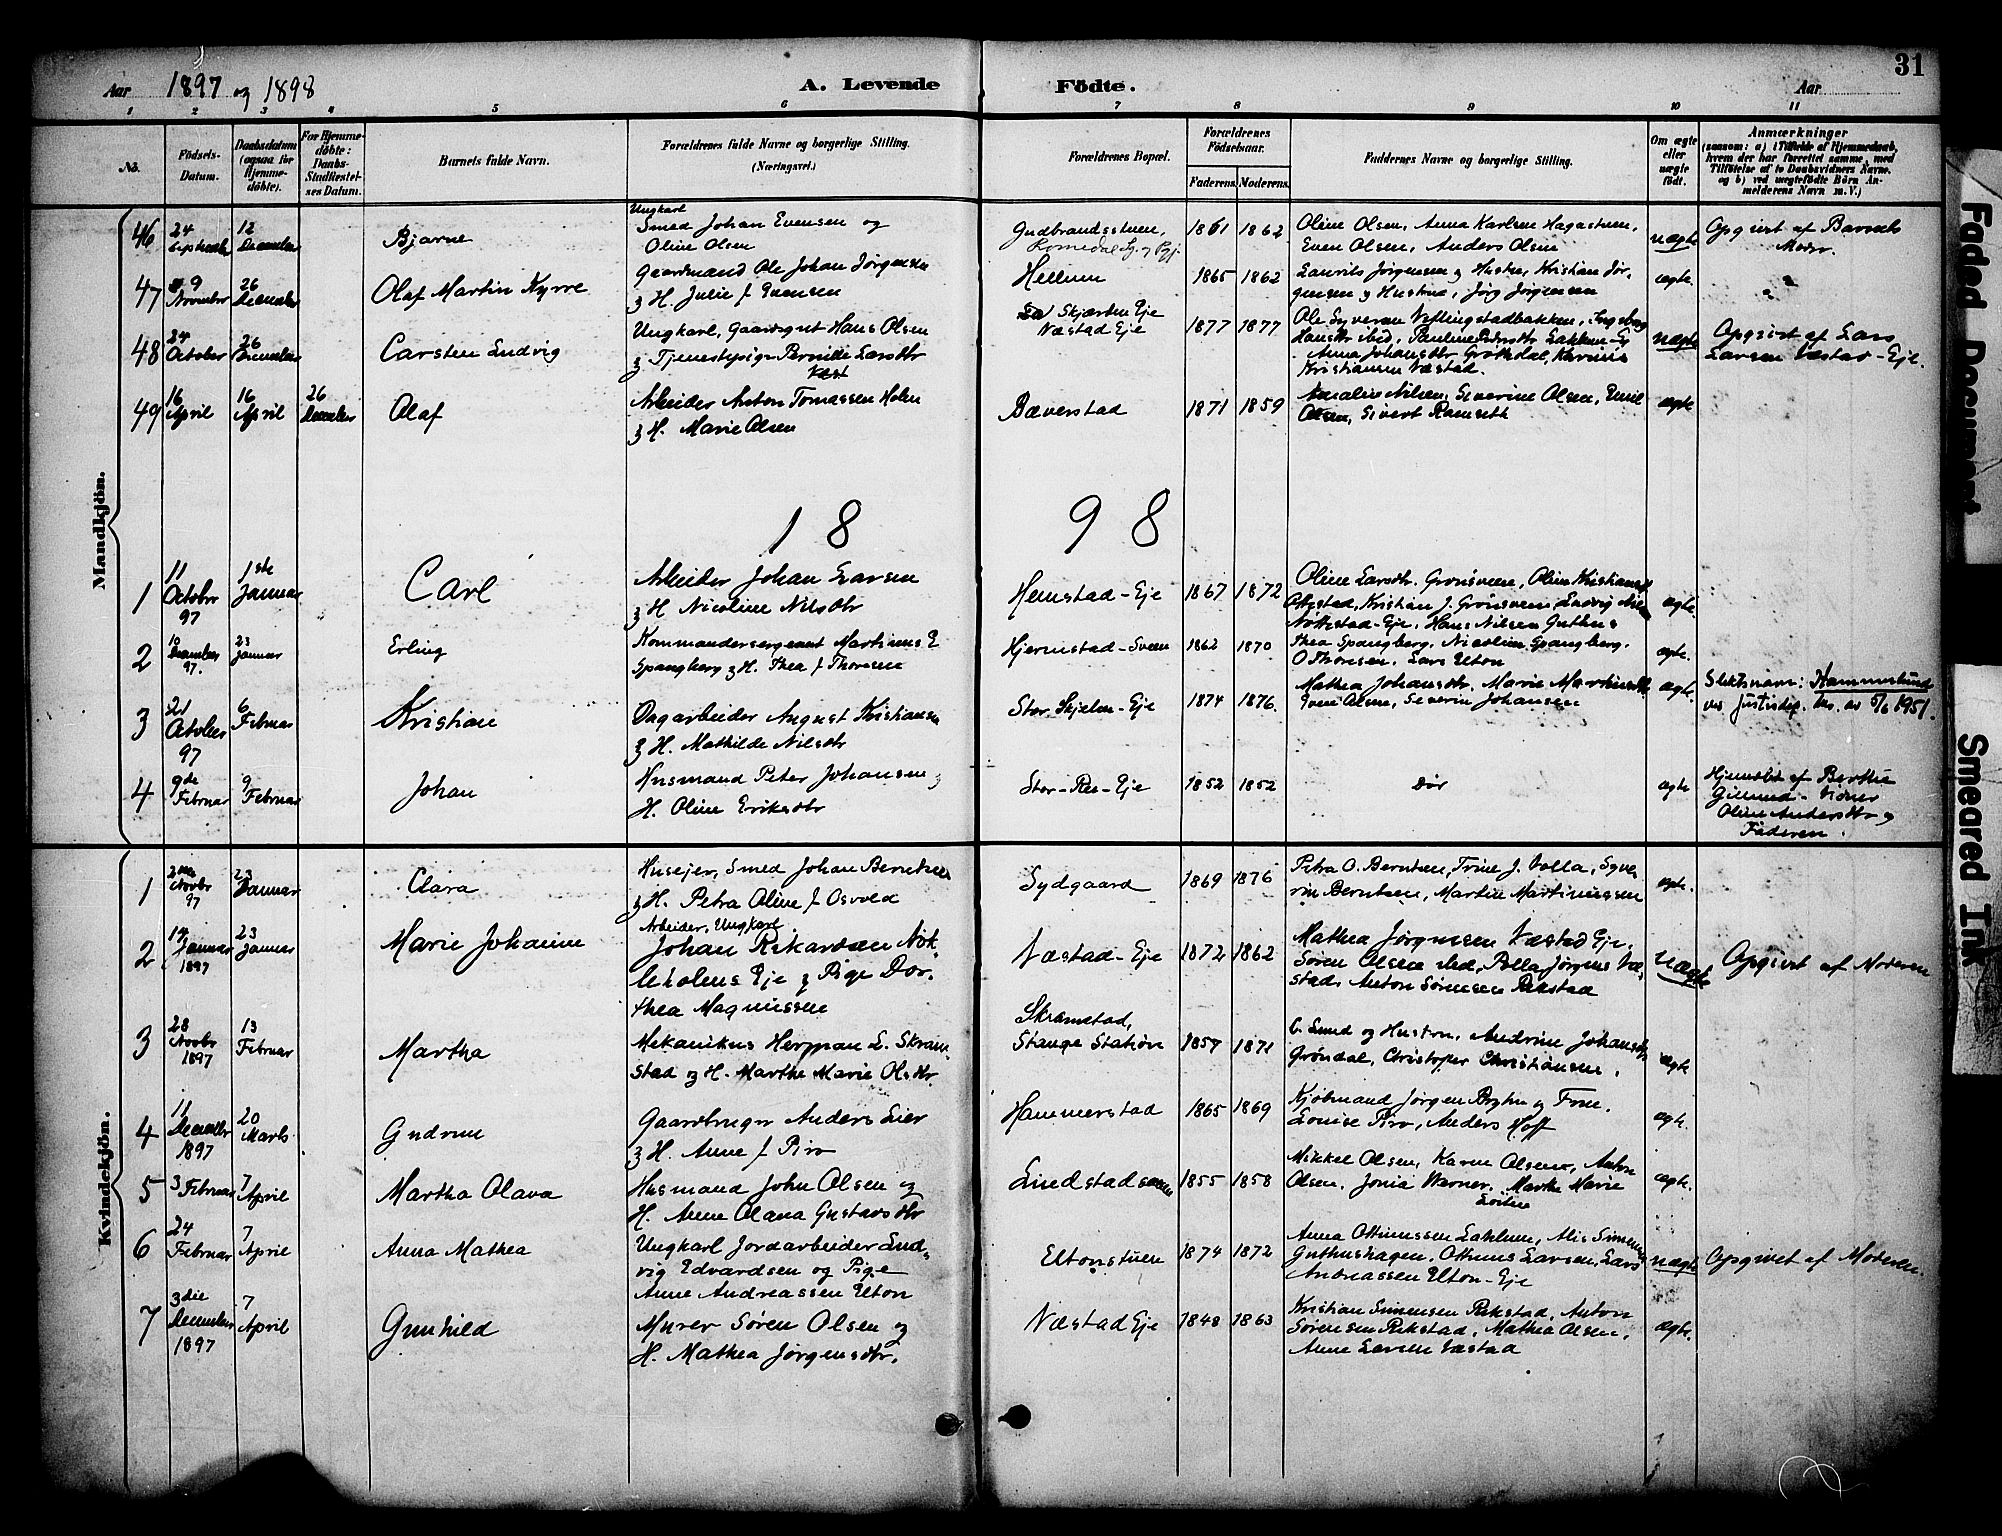 31
Aar 1897 og 1898
A. Levende Födte.
Aar
1 2 3 4 5 6 7 8 9 10 11
No.
Födsels-Datum.
Daabsdatum (ogsaa for Hjemme-döbte).
For Hjemme-döbte: Daabs-Stadfæstel-ses Datum.
Barnets fulde Navn.
Forældrenes fulde Navne og borgerlige Stilling. (Næringsvei.)
Forældrenes Bopæl.
Forældrenes Födselsaar.
Faderens. Moderens.
Faddernes Navne og borgerlige Stilling.
Om ægte eller uægte födt.
Anmærkninger (saasom: a) i Tilfælde af Hjemmedaab, hvem der har forrettet samme, med Tilföielse af to Daabsvidners Navne. og b) ved uægtefödte Börn An-melderens Navn m. V.)
Mandkjön.
46 24 September 12 December Bjarne
Ungkarl Smed Johan Evensen og
Oline Olsen
Gudbrandsstuen, 1861 1862
Oline Olsen, Anna Karlsen Hagastuen,
Even Olsen, Anders Olsen
uægte Opgivet af Barnets
Moder.
47 9 November 26 December Olaf Martin Kyrre
Gaardmand Ole Johan Jörgensen
& H. Julie f. Evensen
Hellum 1865 1862
Laurits Jörgensen & Hustru, Kristian Jör-
gensen & Hustru, Jörg Jörgensen
ægte
48 24 October 26 December Carsten Ludvig
Ungkarl, Gaardsgut Hans Olsen
& Tjenestepige Pernille Larsdtr
Skjærden Eje
Næstad Eje 1877 1877
Ole Syversen Vollingstadbakken, Ingeborg
Hansdtr ibid, Pauline Pedersdtr
Anna Johansdtr Gröthdal,
Kristiansen Næstad.
uægte Opgivet af Lars
Larsen Næstad-Eje.
49 16 April 16 April 26 December Olaf
Arbeider Anton Tomassen Holen
& H. Marie Olsen
Bæverstad 1871 1859
Nilsen, Severine Olsen, Emil
Olsen, Sivert Ramseth
ægte
18 98
1 11 October 97 1ste Januar Carl
Arbeider Johan Larsen
& H. Nicoline Nilsdtr
Hemstad-Eje 1867 1872
Oline Larsdtr. Grönsveen, Oline Kristians
Ottestad, Kristian J. Grönsveen, Ludvig
Nöttestad-Eje, Hans Nilsen Guthus
ægte
2 10 December 97. 23 Januar Erling
Kommandersergeant Martinus E
Spangberg & H. Thea f. Thoresen
Hjermstad-Sveen 1862 1870
Thea Spangberg, Nicoline Spangberg.
O Thoresen. Lars Elton
ægte.
3 21 October 97 6 Februar Kristian
Dagarbeider August Kristiansen
& H. Mathilde Nilsdtr
Stor Skjelm-Eje 1874 1876.
Mathea Johansdtr. Marie Martinsdtr
Even Olsen, Severin Johansen
ægte. Slektsnavn: Hammerlund
1951.
4 9de Februar 9 Februar Johan
Husmand Peter Johansen &
H. Oline Eriksdtr
Stor-Ree-Eje 1852 1852
Dör
ægte Hjemdöbt af Berthe
Oline Andersdtr og
Faderen.
Kvindekjön.
1 2den Novbr 97 23 Januar Clara
Husejer, Smed Johan Berntsen
& H. Petra Oline f Osvold
Sydgaard 1869 1876
Petra O. Berntsen, Trine J. Volla, Syve-
rin Berntsen, Martin Martinussen
ægte.
2 14 Januar 1897 23 Januar Marie Johanne
Arbeider, Ungkarl.
Johan Rikardsen Nök-
leholens Eje & Pige Dor-
thea Magnussen
Næstad-Eje 1872 1862
Mathea Jörgensen Næstad Eje,
Sören Olsen ibid, Polla Jörgens Næ-
stad, Anton Sörensen Rekstad
uægte Opgivet af Moderen
3 28 Novbr 1897 13 Februar Martha
Mekanikus Herman L. Skram-
stad og H. Marthe Marie Olsdtr.
Skramstad,
Stange Station 1857 1871
C. Lund og Hustru, Andrine Johansdtr
Gröndal, Christopher Christiansen.
ægte
4 11 December 1897 20 Marts Gudrun
Gaardbruger Anders Lier
& H. Anne f Piro
Hammerstad 1865 1869
Kjöbmand Jörgen Bryhn & Frue.
Louise Piro, Anders Hoff
ægte.
5 3 Februar 7 April Martha Olava
Husmand John Olsen og
H. Anne Olava Gustavsdtr
Lindstadsveen 1855 1858
Mikkel Olsen, Karen Olsen, Anton
Olsen, Jonia Warner. Marthe Marie
Löiten
ægte.
6 24 Februar 7 April Anna Mathea
Ungkarl Jordarbeider Lud-
vig Edvardsen og Pige
Anne Andreassen Elton
Eltonstuen 1874 1872
Anna Ottinussen Laklum, Nils Simensen
Guthushagen, Ottinus Larsen, Lars
Andreassen Elton-Eje
uægte Opgivet af Moderen.
7 3die December 1897 7 April Gunhild
Murer Sören Olsen og
H. Mathea Jörgensdtr.
Næstad Eje 1848 1863
Kristian Simensen Rekstad, Anton
Sörensen Rekstad, Mathea Olsen,
Anne Larsen Næstad
ægte.
Faded Document
Smeared Ink